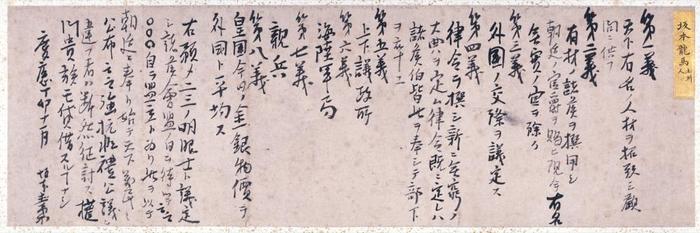 坂本龍馬 土州人
第一義
天下有名ノ人材ヲ招致シ顧
問ニ供フ
第二義
有材ノ諸侯ヲ撰用シ
朝廷ノ官爵ヲ賜ヒ現今有名
無実ノ官ヲ除ク
第三義
外国ノ交際ヲ議定ス
第四義
律令ヲ撰シ新ニ無窮ノ
大典ヲ定ム律令既ニ定レハ
諸侯伯皆此ヲ奉シテ部下
ヲ率ユ
第五義
上下議政所
第六義
海陸軍局
第七義
親兵
第八義
皇国今日ノ金銀物價ヲ
外国ト平均ス
右預メ二三ノ明眼士ト議定
シ諸侯會盟ノ日ヲ待ツテ云云
○○○自ラ盟主ト為リ此ヲ以テ
朝廷ニ奉リ始テ天下萬民ニ
公布云云強抗非禮公議ニ
違フ者ハ断然征討ス権
門貴族モ貸借スルヿナシ
慶應丁卯十一月 坂本直柔